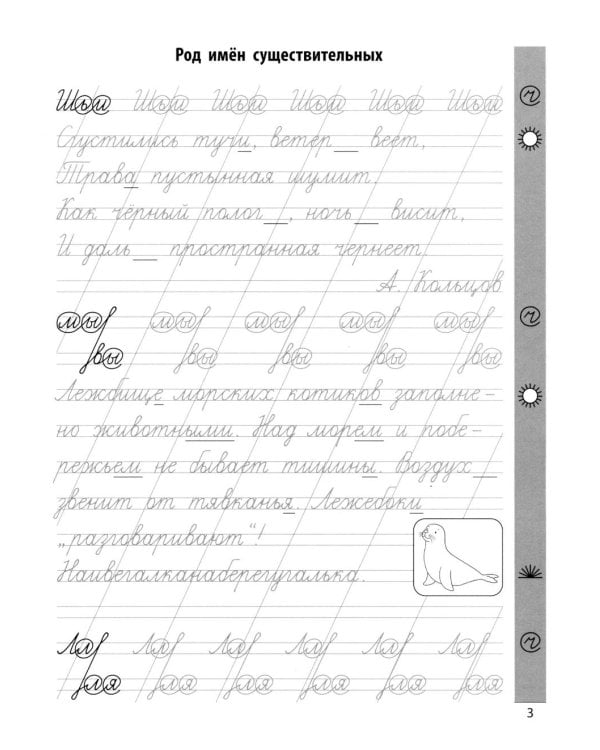 Род имён существительных
Шъы Шъы Шъы Шъы Шъы Шъы
Сгустились тучи, ветер__ веет,
Трава пустынная шумит,
Как чёрный полог__, ночь__ висит,
И даль__ пространная чернеет.
А. Кольцов
мы мы мы мы мы
вы вы вы вы вы
Лежбище морских котиков заполне-
но животными. Над морем и побе-
режьем не бывает тишины. Воздух__
звенит от тявканья. Лежебоки
„разговаривают“!
Наивегалканаберегугалька.
Лл Лл Лл Лл Лл Лл
ля ля ля ля ля ля
3